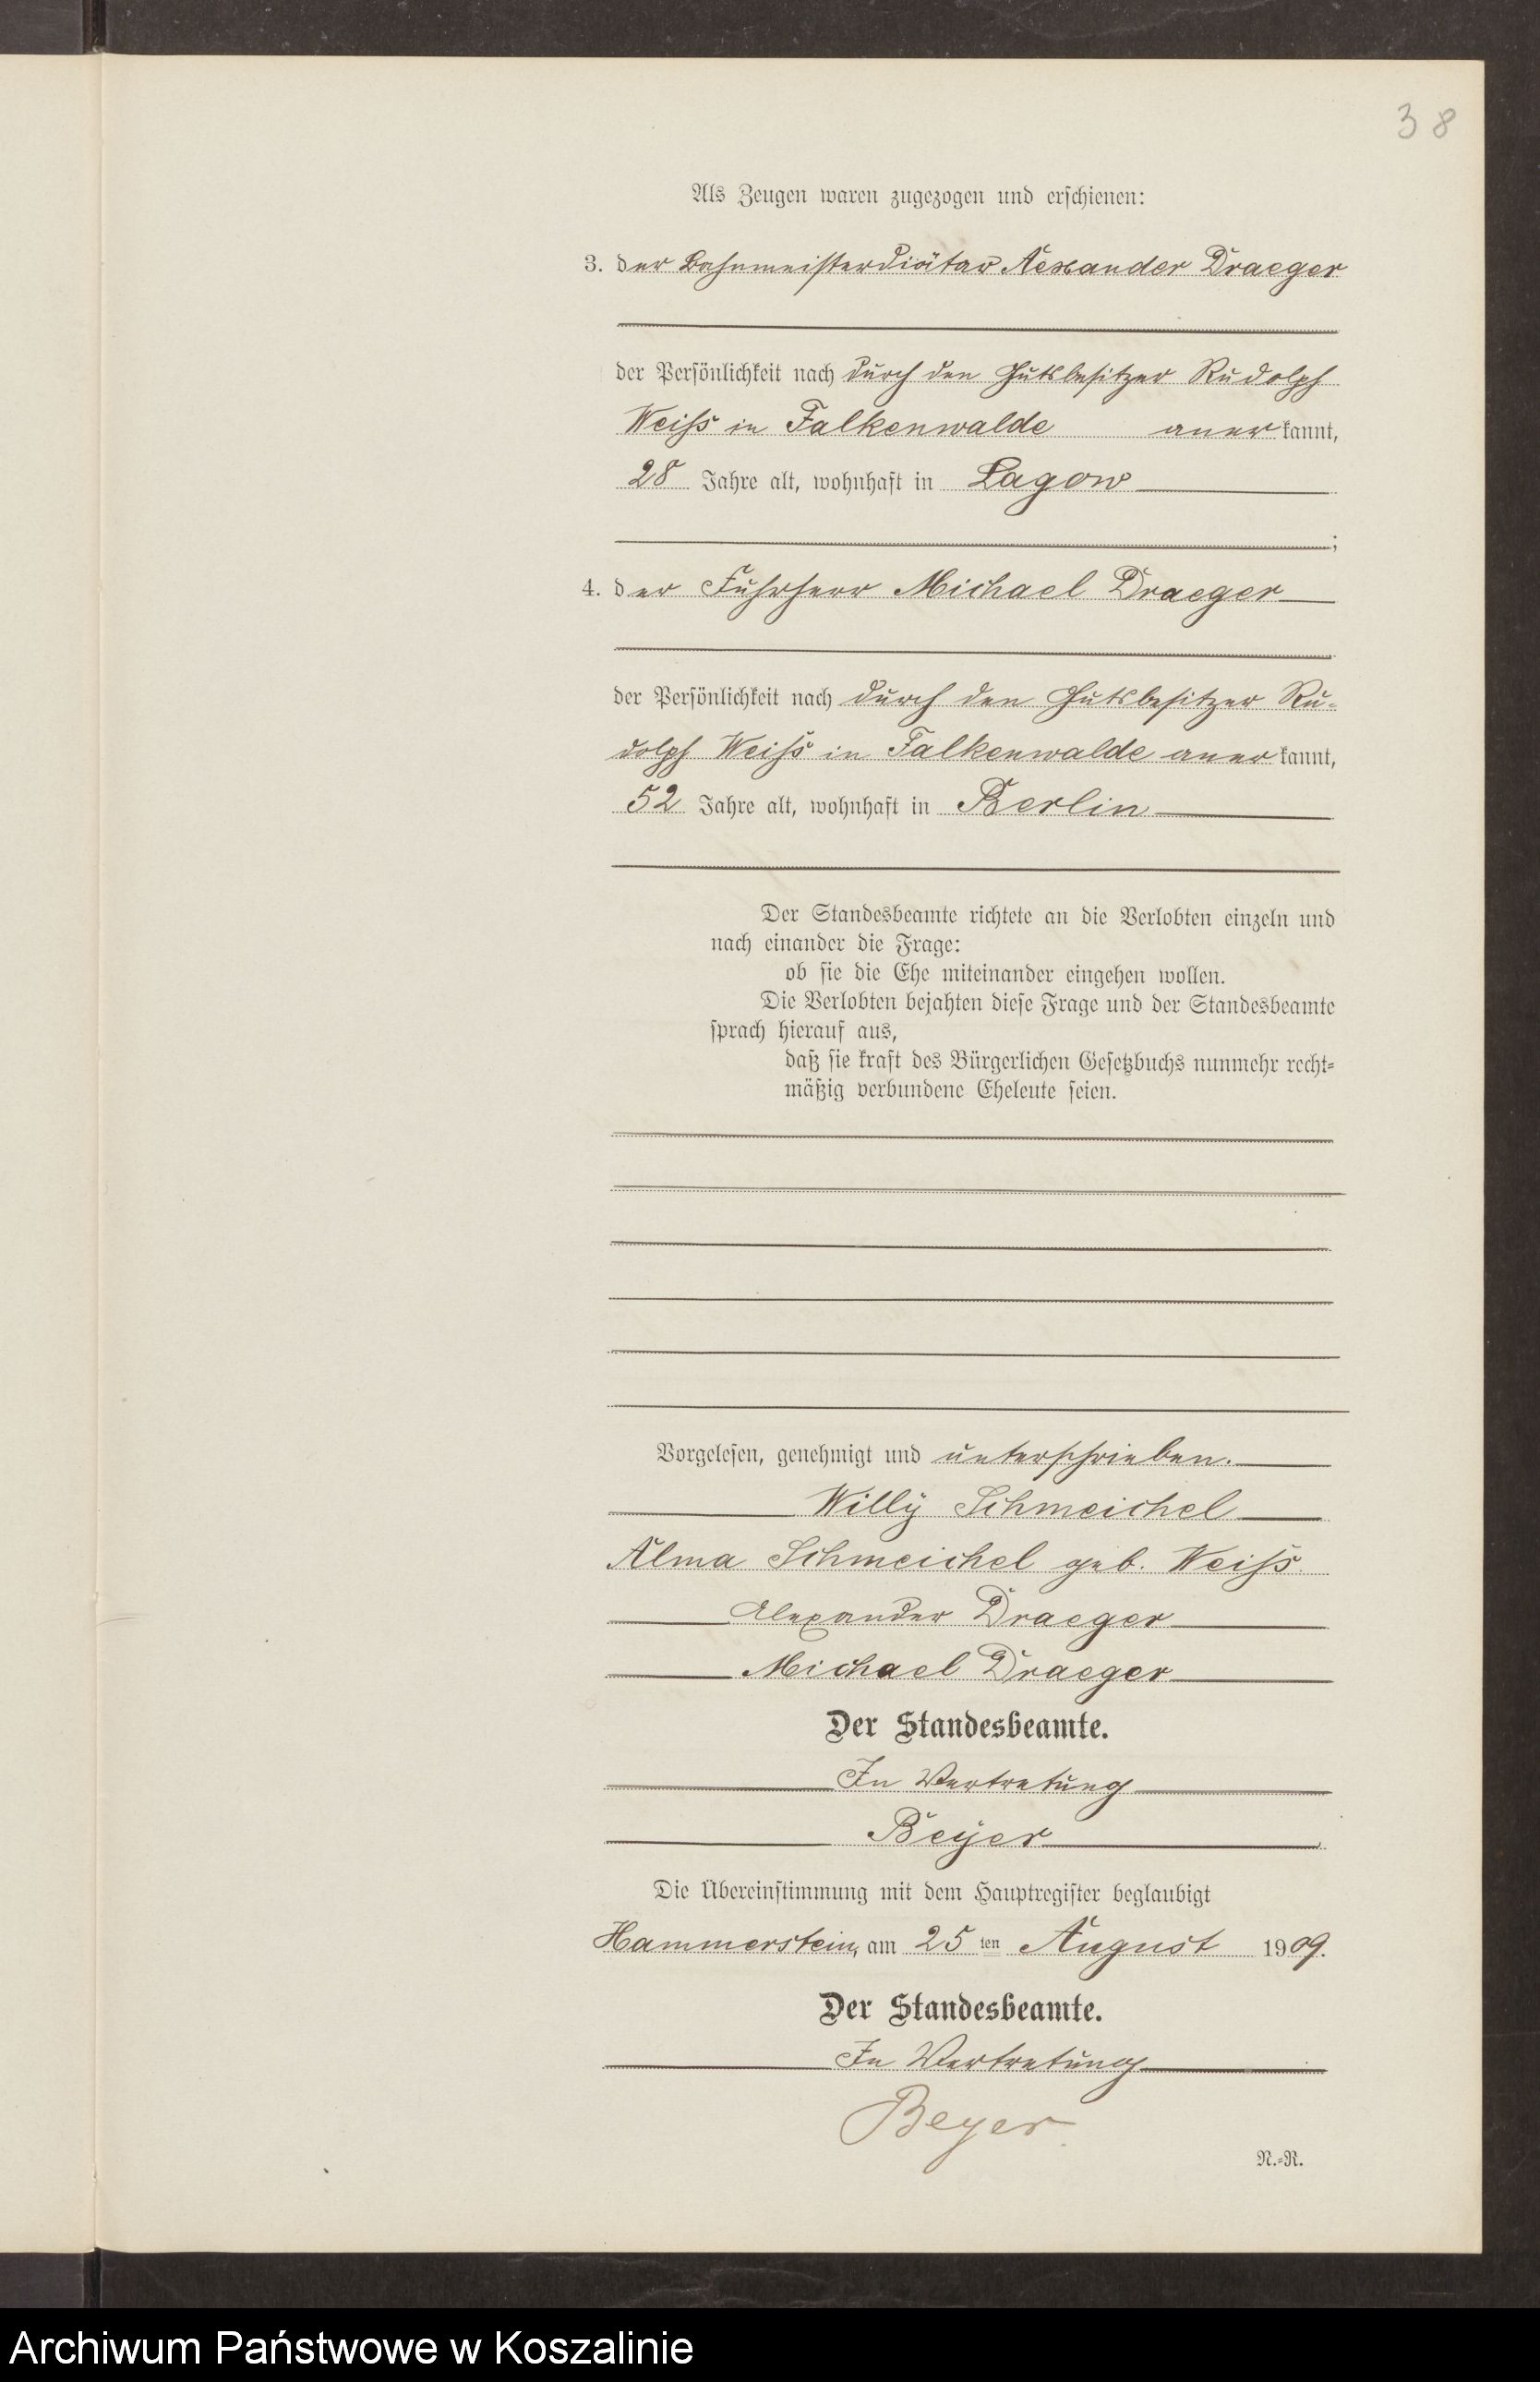 38
Als Zeugen waren zugezogen und erschienen:
3. der Bahnmeisterdiätar Alexander Draeger
der Persönlichkeit nach durch den Gutsbesitzer Rudolph
Weiß in Falkenwalde anerkannt,
28 Jahre alt, wohnhaft in Lagow
;
4. der Fuhrherr Michael Draeger
der Persönlichkeit nach durch den Gutsbesitzer Ru-
dolph Weiß in Falkenwalde anerkannt,
52 Jahre alt, wohnhaft in Berlin
Der Standesbeamte richtete an die Verlobten einzeln und
nach einander die Frage:
ob sie die Ehe miteinander eingehen wollen.
Die Verlobten bejahten diese Frage und der Standesbeamte
sprach hierauf aus,
daß sie kraft des Bürgerlichen Gesetzbuchs nunmehr recht-
mäßig verbundene Eheleute seien.
Vorgelesen, genehmigt und unterschrieben.
Willy Schmeichel
Alma Schmeichel geb. Weiß.
Alexander Draeger
Michael Draeger
Der Standesbeamte.
In Vertretung
Beyer
Die Übereinstimmung mit dem Hauptregister beglaubigt
Hammerstein, am 25ten August 1909.
Der Standesbeamte.
In Vertretung
Beyer.
N.-R.
Archiwum Państwowe w Koszalinie